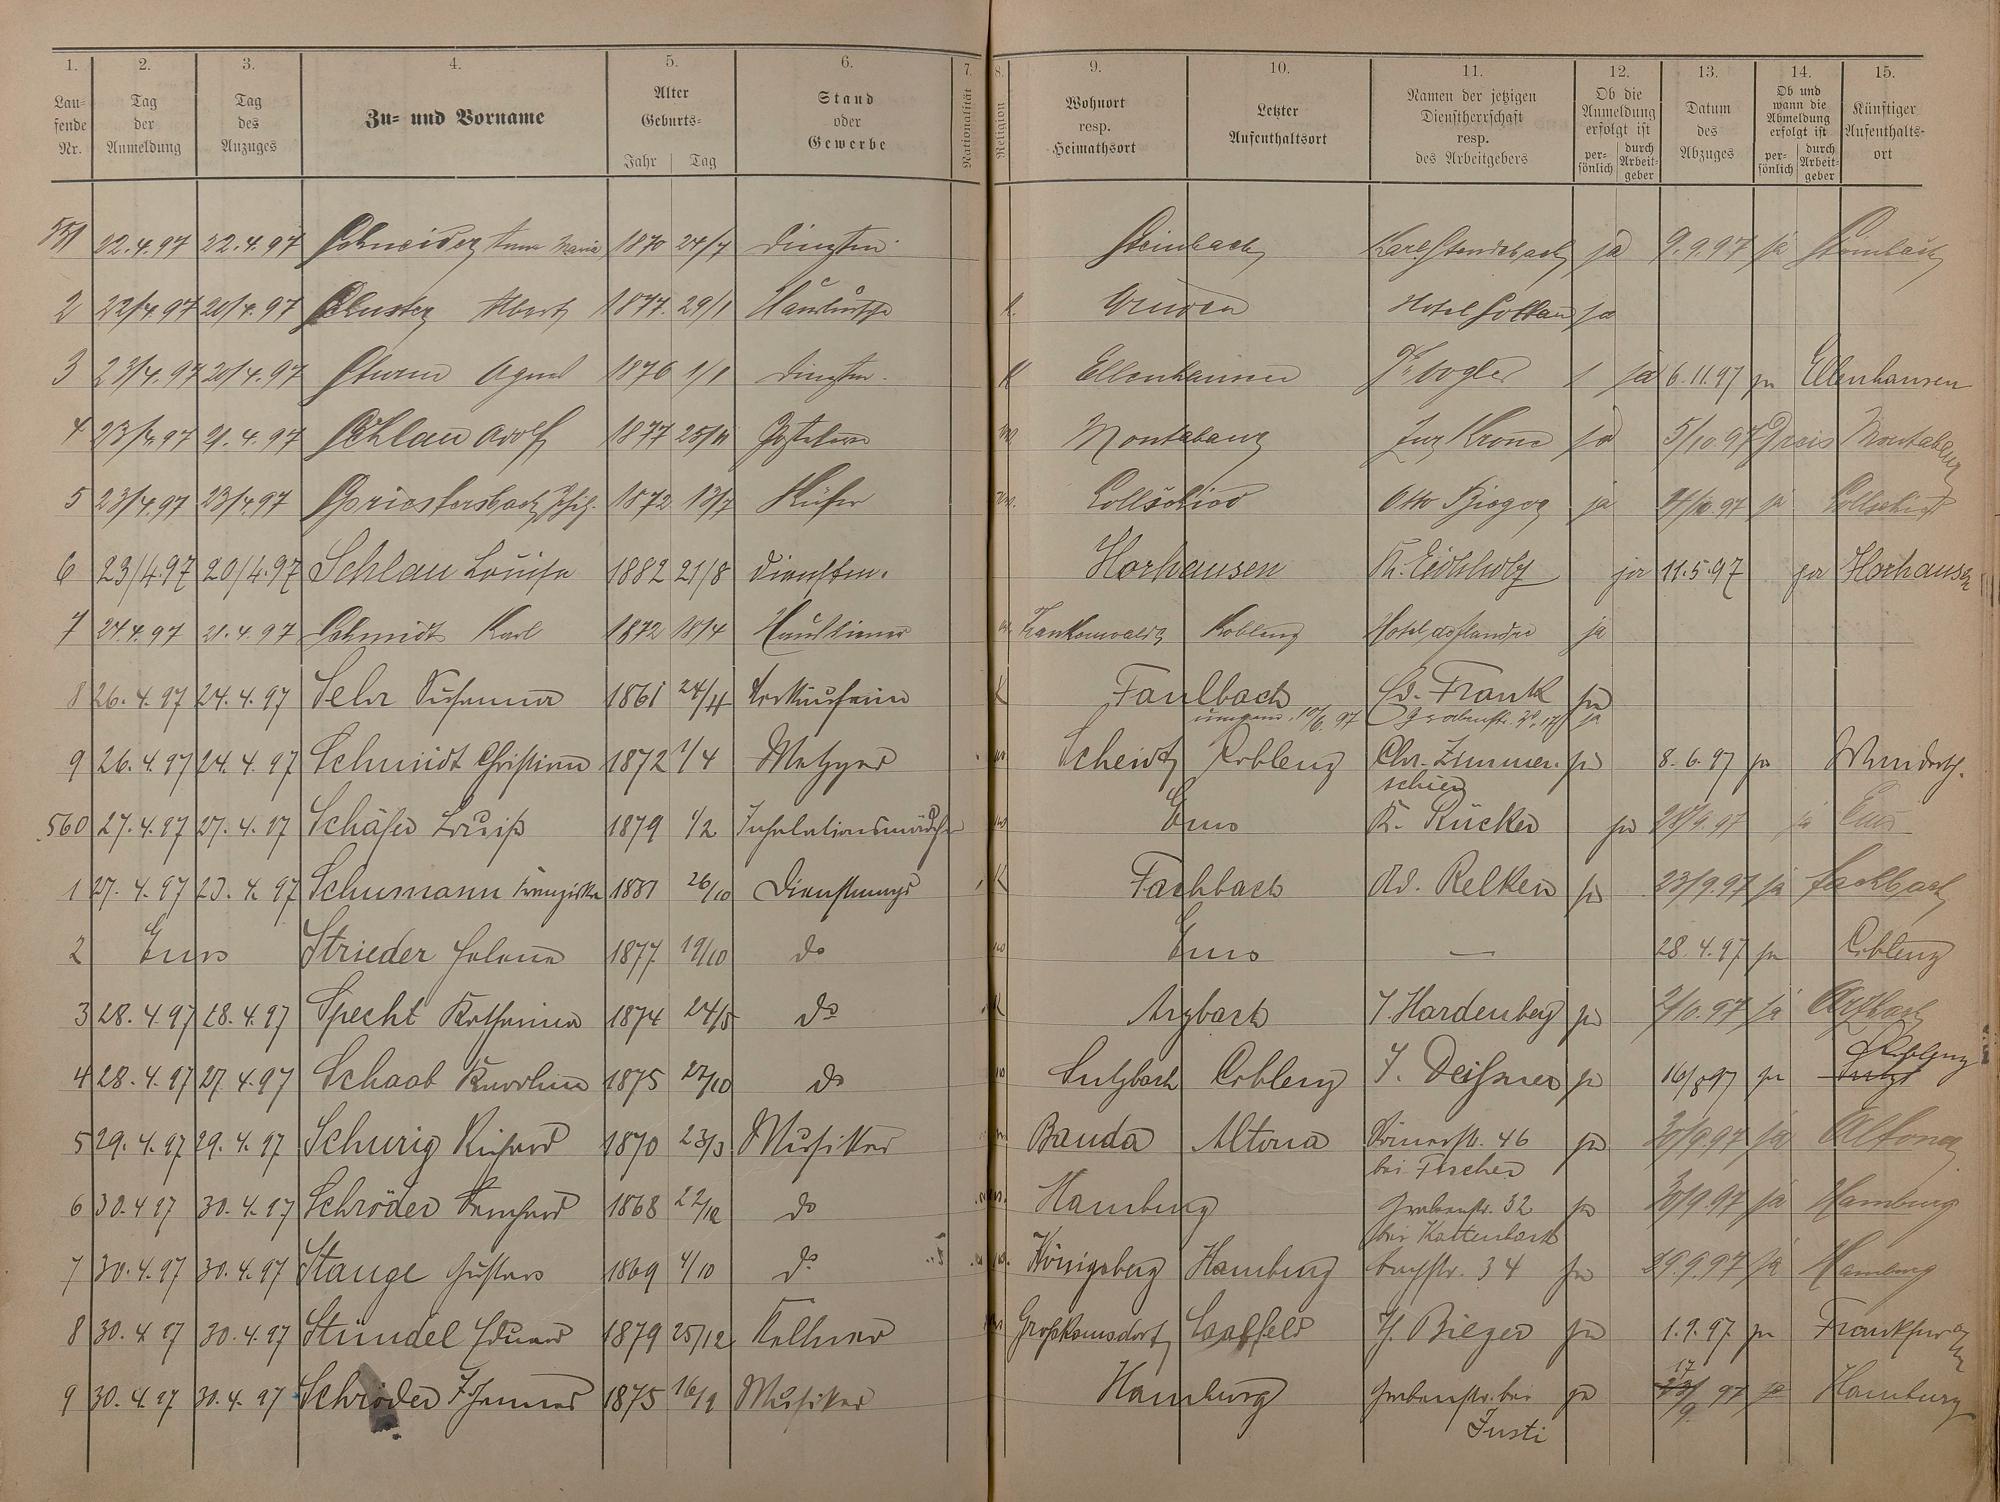 1. 2. 3. 4. 5. 6. 7. 8. 9. 10. 11. 12. 13. 14. 15.
Lau-
fende
Nr.
Tag
der
Anmeldung
Tag
des
Anzuges
Zu- und Vorname
Alter
Geburts-
Jahr Tag
Stand
oder
Gewerbe
Nationalität
Religion
Wohnort
resp.
Heimathsort
Letzter
Aufenthaltsort
Namen der jetzigen
Dienstherrschaft
resp.
des Arbeitgebers
Ob die
Anmeldung
erfolgt ist
per-
sönlich
durch
Arbeit-
geber
Datum
des
Abzuges
Ob und
wann die
Abmeldung
erfolgt ist
per-
sönlich
durch
Arbeit-
geber
Künftiger
Aufenthalts-
ort
551 22.4.97 22.4.97 Schneider Anna Maria 1870 24/7 Dienstm. Steinbach ja 9.9.97 ja Steinbach
2 22/4.97 20/4.97 Albert 1877. 29/1 Hausbursche K. Hotel ja
3 23/4.97 20/4.97 Sturm Agnes 1876 1/1 Dienstm. K Ellenhausen Vogler ja 6.11.97 ja Ellenhausen
4 23/4.97 21.4.97 Schlau Adolf 1877 Montabaur Zur Krone ja 5/10.97 Montabaur
5 23/4.97 23/4.97 1872 13/7 Küfer Otto ja ja
6 23/4.97 20/4.97 Schlau Louise 1882 21/8 Dienstm. Horhausen Eichholz ja 11.5.97 ja Horhausen
7 24.4.97 21.4.97 Schmidt Karl 1872 18/4 Hausdiener Koblenz Hotel ja
8 26.4.97 24.4.97 Susanna 1861 24/4 Verkäuferin K Faulbach Ed. Frank ja
10/6.97 ja
9 26.4.97 24.4.97 Schmidt Christian 1872 1/4 Metzger Scheidt Coblenz Chr. Zimmer- ja 8.6.97 ja
schied
560 27.4.97 27.4.97 Schäfer Louise 1879 1/2 Inhalationsmädchen Ems K. Rücker ja 28/9.97 ja Ems
1 27.4.97 23.4.97 Schumann Franziska 1881 26/10 Dienstmagd K Fachbach Ad. Relken ja 23/9.97 ja Fachbach
2 Ems Strieder Helene 1877 19/10 do Ems — 28.4.97 ja Coblenz
3 28.4.97 28.4.97 Specht Katharina 1874 24/5 do K Arzbach J. Hardenberg ja 2/10.97 ja Arzbach
4 28.4.97 27.4.97 Schaab Karoline 1875 27/10 do Sulzbach Coblenz J. Deißner ja 16/8 97 ja Coblenz
5 29.4.97 29.4.97 Schurig Richard 1870 23/3 Musiker Banda Altona Römerstr. 46 ja 30/9.97 ja Altona
bei Fischer
6 30.4.97 30.4.97 Schröder Bernhard 1868 22/12 do Hamburg Grabenstr. 32 ja 30/9.97 ja Hamburg
bei Kattenbach
7 30.4.97 30.4.97 Stange Gustav 1869 4/10 do Königsberg Hamburg Bachstr. 34 ja 29.9.97 ja Hamburg
8 30.4.97 30.4.97 Stündel Eduard 1879 25/12 Kellner Großkamsdorf Saalfeld H. Bieger ja 1.9.97 ja Frankfurt
9 30.4.97 30.4.97 Schröder Johannes 1875 16/9 Musiker Hamburg Grabenstr. bei ja 17/9 97 ja Hamburg
Justi